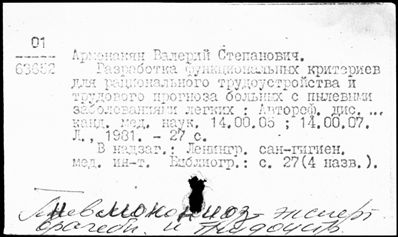 01
63652
Арменакян Валерий Степанович.
Разработка функциональных критериев
для рационального трудоустройства и
трудового прогноза больных с пылевыми
заболеваниями легких : Автореф. дис. ...
канд. мед. наук. 14.00.05 ; 14.00.07.
Л., 1981. - 27 с.
В надзаг.: Ленингр. сан-гигиен.
мед. ин-т. Библиогр.: с. 27(4 назв.).
Пневмокониоз - эксперт.
врачебн. и трудоустр.